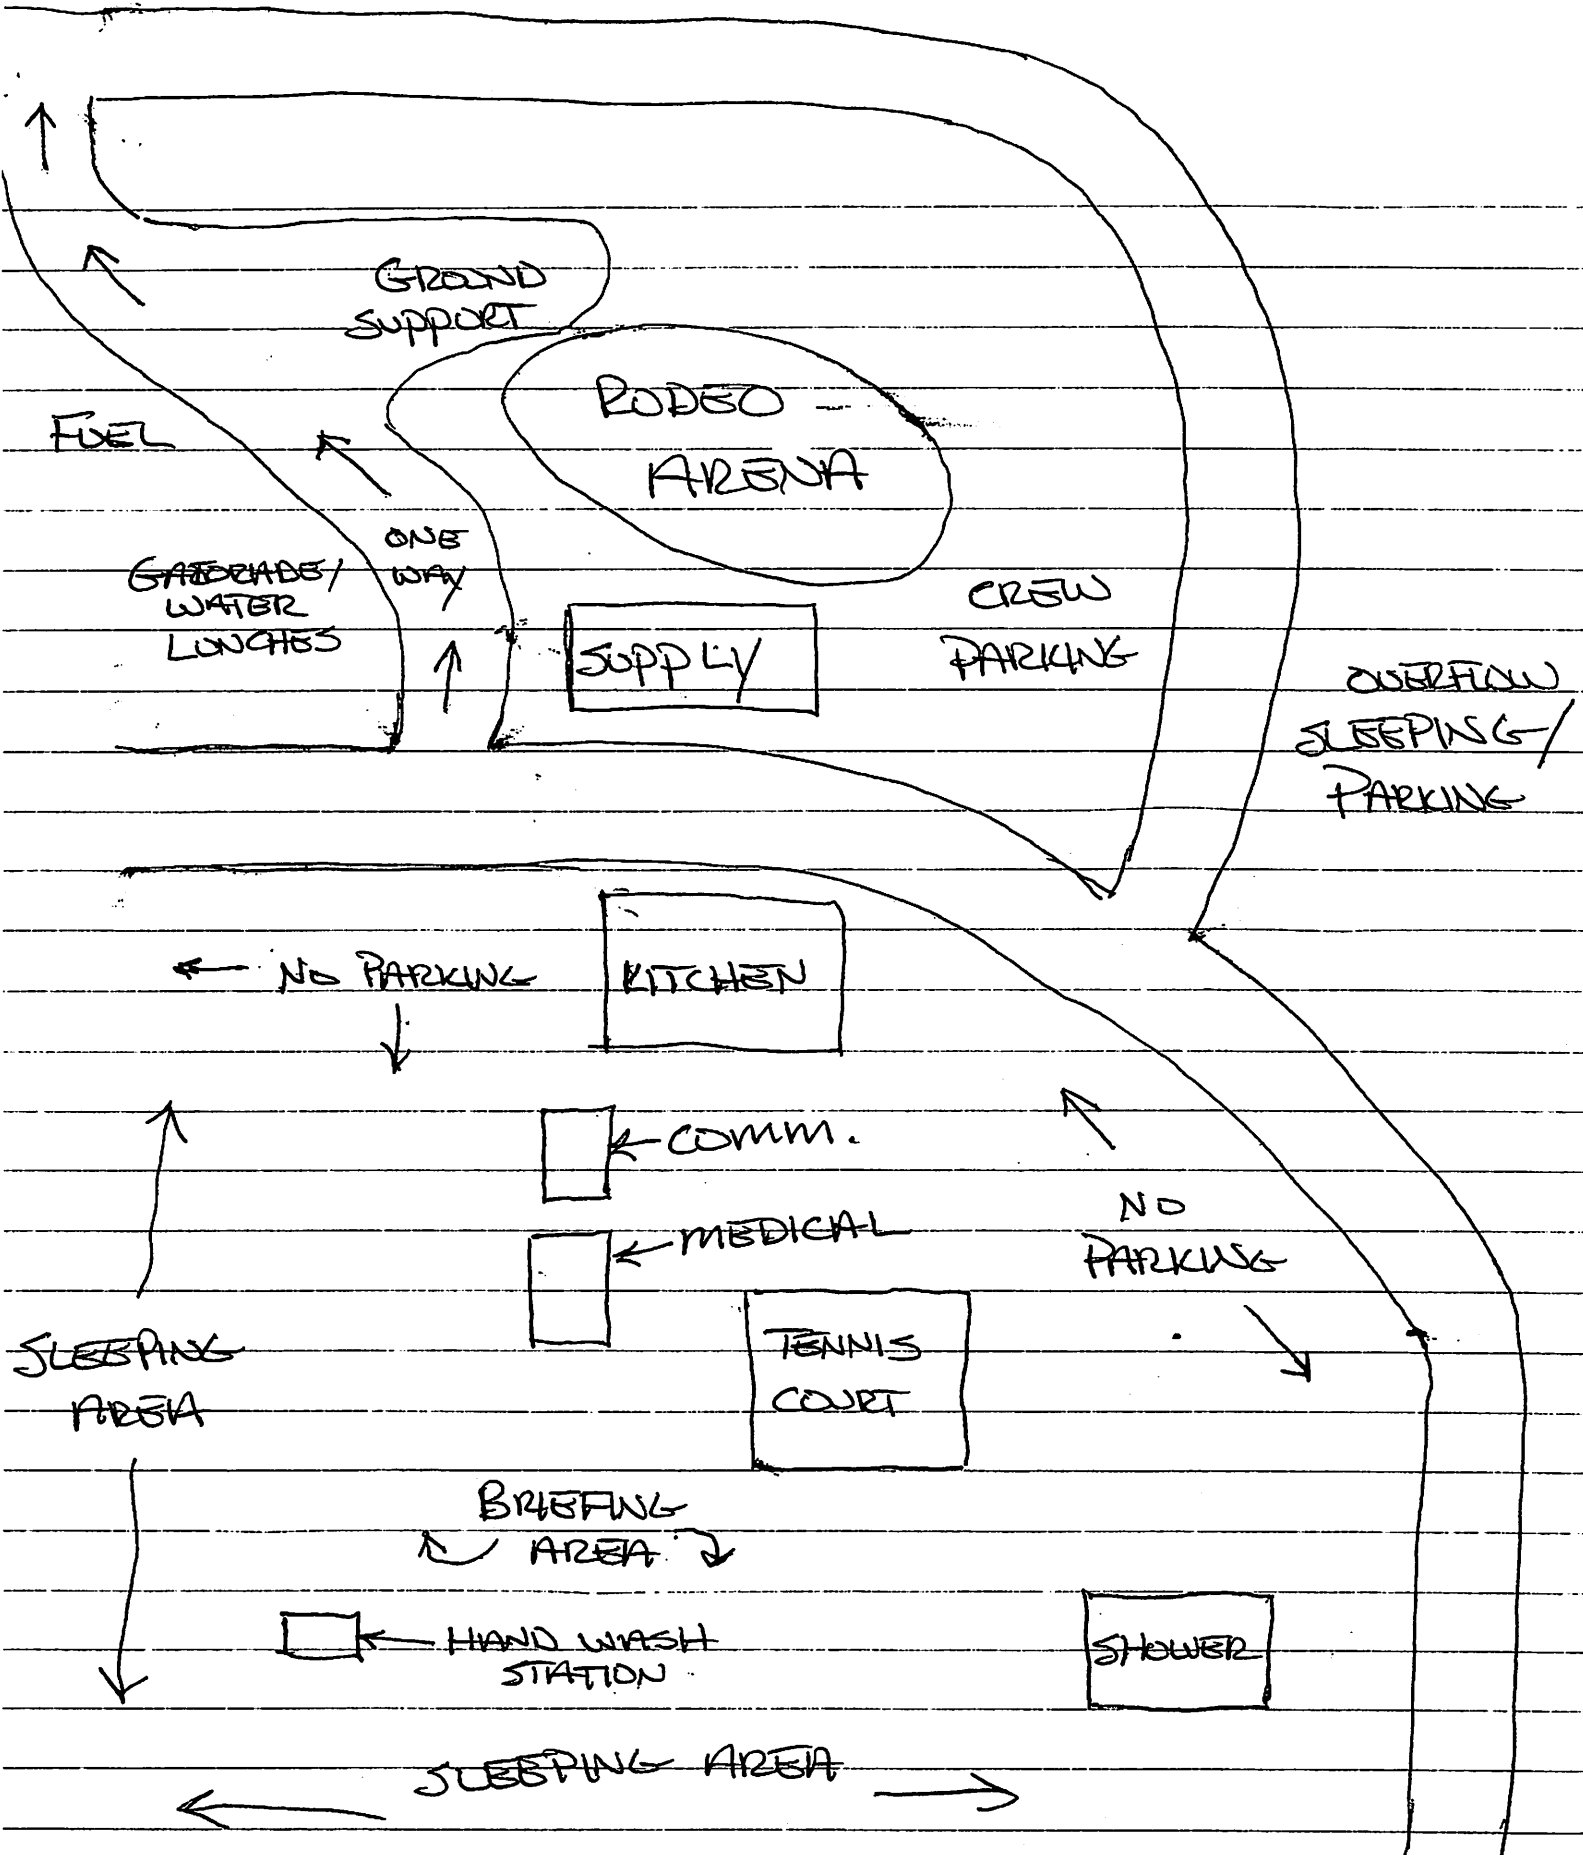 GROUND
SUPPORT
RODEO
ARENA
FUEL
ONE
WAY
GATORADE/
WATER
LUNCHES
SUPPLY
CREW
PARKING
OVERFLOW
SLEEPING/
PARKING
NO PARKING
KITCHEN
COMM.
MEDICAL
NO
PARKING
TENNIS
COURT
SLEEPING
AREA
BRIEFING
AREA
HAND WASH
STATION
SHOWER
SLEEPING AREA